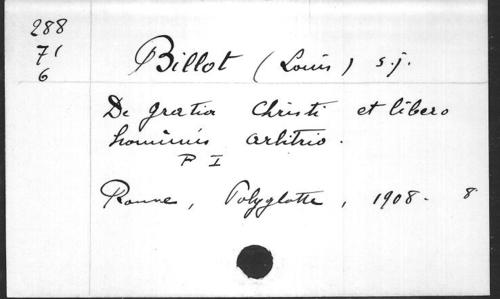 288
71
6
Billot (Louis) s.j.
De gratia Christi et libero
hominis arbitrio.
P I
Rome, Polyglotte, 1908. 8